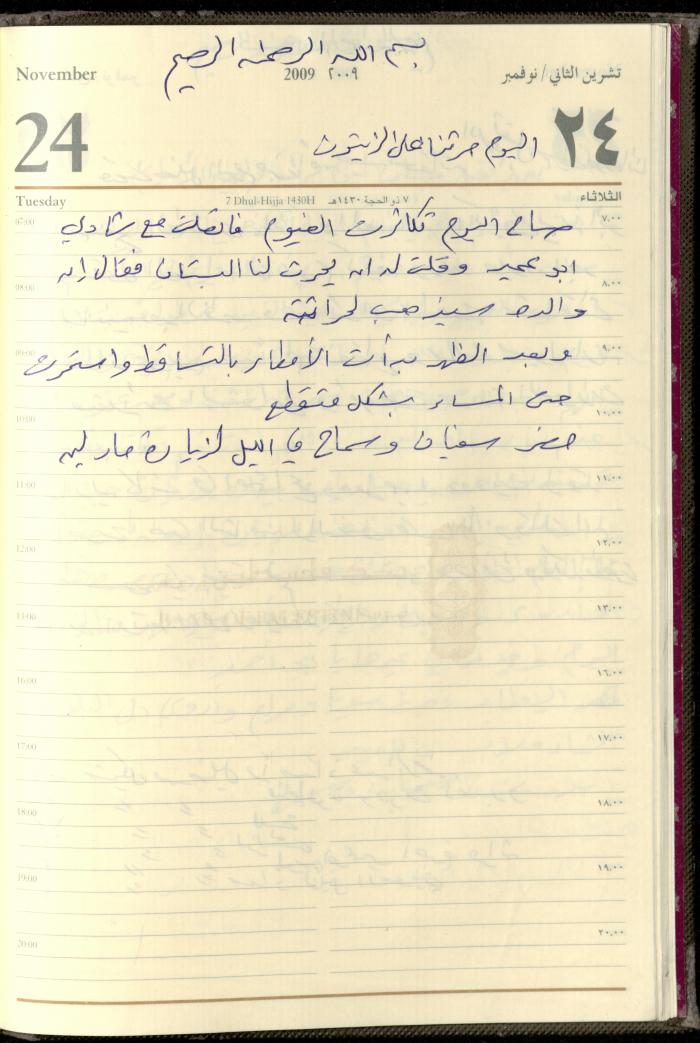 بسم الله الرحمن الرحيم
November 2009 ٢٠٠٩ تشرين الثاني / نوفمبر
24 ٢٤
اليوم حرثنا على الزيتون
Tuesday 7 Dhul-Hijja 1430H ٧ ذو الحجة ١٤٣٠هـ الثلاثاء
صباح اليوم تكاثرت الغيوم فاتصلت مع شادي
ابو عمير وقلت له ان يحرث لنا البستان فقال إنه
والده سيذهب لحراثته
وبعد الظهر بدأت الأمطار بالتساقط واستمرت
حتى المساء بشكل متقطع
حضر سفيان وسماح في الليل لزيارة مادلين
07:00 ٧.٠٠
08:00 ٨.٠٠
09:00 ٩.٠٠
10:00 ١٠.٠٠
11:00 ١١.٠٠
12:00 ١٢.٠٠
13:00 ١٣.٠٠
16:00 ١٦.٠٠
17:00 ١٧.٠٠
18:00 ١٨.٠٠
19:00 ١٩.٠٠
20:00 ٢٠.٠٠